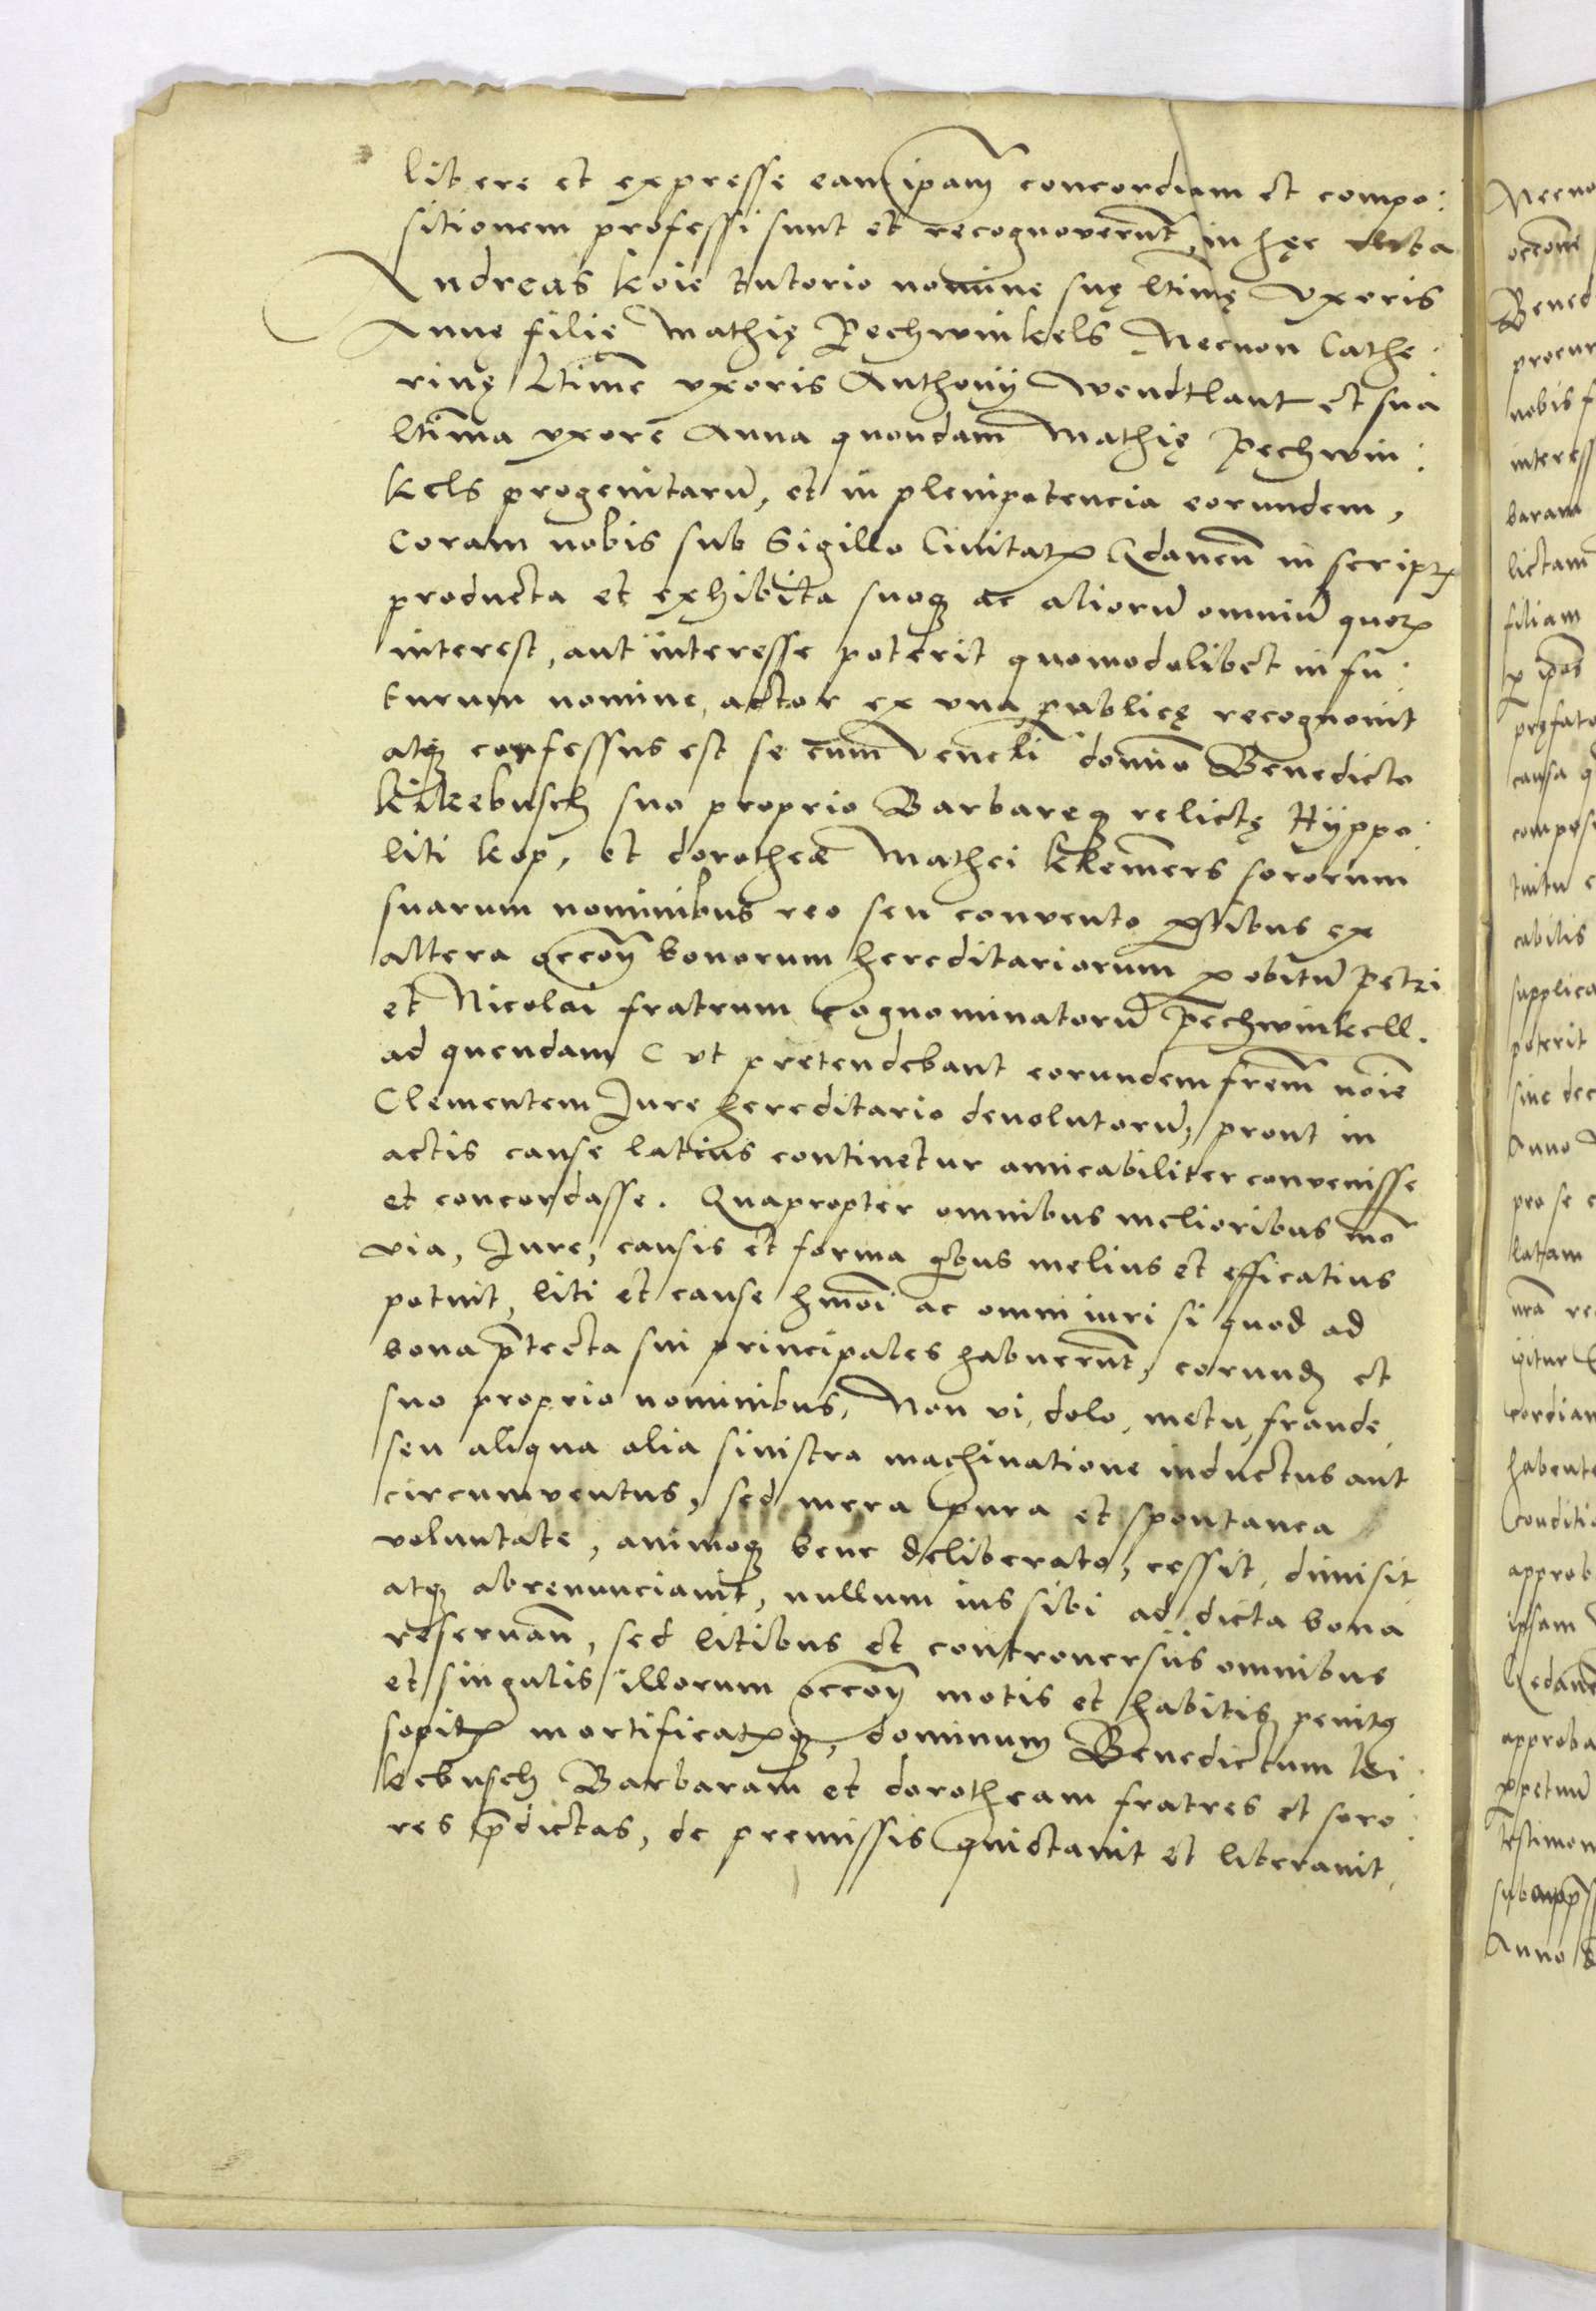 libere et expresse eam ipam̄ concordiam et compo:
sitionem professi sunt et recognoverunt, in hęc verba
Andreas Koie tutorio nomine suę ltimę Uxoris
Annę filię Mathię Pechwinkels Necnon Cathe:
rinę Ltimę uxoris Anthonij Wendtlant et sua
ltīma uxore Anna quondam Mathię Pechwin:
kels progenitarū, et in plenipotencia eorundem,
Coram nobis sub Sigillo Civitatis Gdanen̄ in scriptis
producta et exhibita suoq; ac aliorū omniū quorū
interest, aut interesse poterit quomodolibet in fu:
turum nomine, actor ex una, publicę recognovit
atq; confessus est se cum venerli domino Benedicto
Kikebusch suo proprio Barbareq; relictę Hyppo:
liti Kop, et dorotheæ Mathei Klemers sororum
suarum nominibus reo seu convento p̱tibus ex
altera occōn̄ bonorum hereditariorum p̱ obitū Petri
et Nicolai fratrum cognominatorū Pechwinkell.
ad quendam ut pretendebant eorundem frēm noīe
Clementem Jure hereditario devolutorū, prout in
actis cause latius continetur amicabiliter convenisse
et concordasse. Quapropter omnibus melioribus mō
via, Jure, causis et forma q̄bus melius et efficatius
potuit, liti et cause hmōi ac omni iuri si quod ad
bona p̄tecta sui principales habuerunt, eorund; et
suo proprio nominibus, Non vi, dolo, metu, fraude
seu aliqua alia sinistra machinatione inductus aut
circumventus, sed mera pura et spontanea
voluntate, animoq; bene deliberato, cessit, dimisit
atq; abrenunciavit, nullum ius sibi ad dicta bona
reservan̄, sed litibus et controversiis omnibus
et singulis illorum occōn̄ motis et habitis penitus
sopitis mortificatisq;, dominum Benedictum Ki:
kebusch Barbaram et dorotheam fratres et soro:
res p̄dictas, de premissis quictavit et liberavit,
Necno
occōne
Bened
procur
nobis f
interess
baram
lictam
filiam
p̱ ip̄os
pręfato
causa q
compos
tuitu e
cabilis
supplica
poterit
sine dec
Anno
pro se e
latam
urā re
igitur
cordiam
habente
conditio
approb
ipsam
Gedane
approba
p̱petuū
testimon
sub app̄
Anno